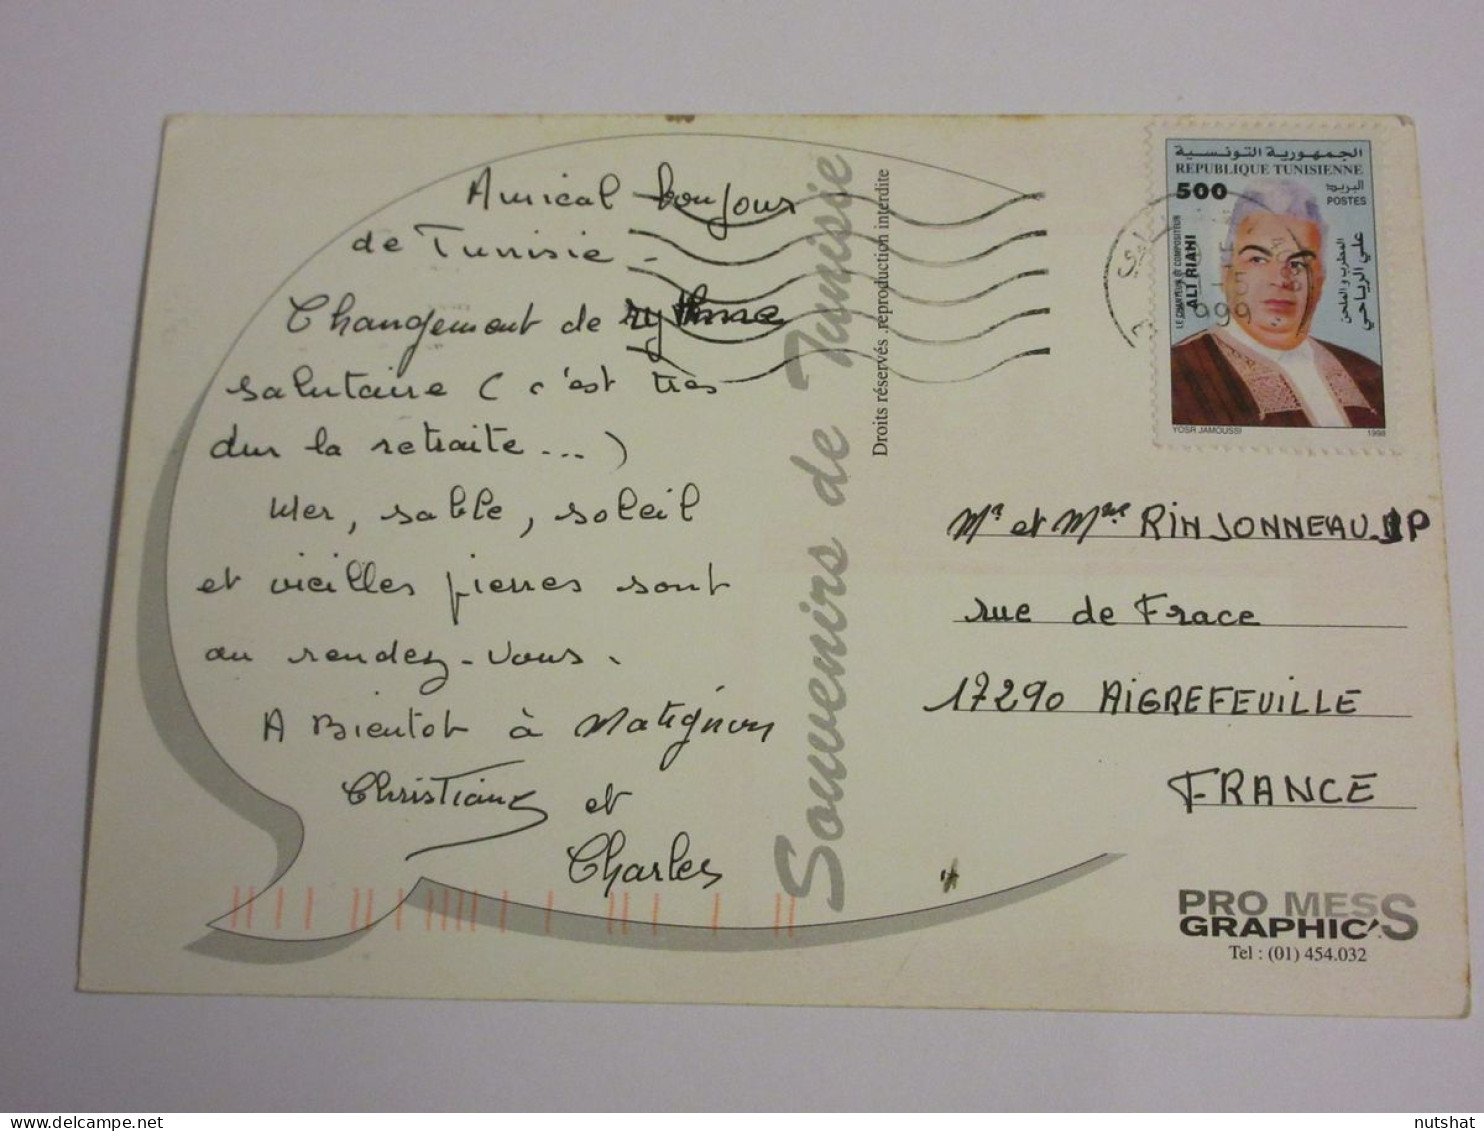 Amical bonjour
de Tunisie -
Changement de rythme
salutaire ( c'est très
dur la retraite... )
Mer, sable, soleil
et vieilles pierres sont
au rendez-vous.
A Bientot à Matignon
Christiane et
Charles
Souvenirs de Tunisie
Droits réservés .reproduction interdite
الجمهورية التونسية
REPUBLIQUE TUNISIENNE
500
البريد
POSTES
LE CHANTEUR ET COMPOSITEUR
ALI RIAHI
المطرب و الملحن
علي الرياحي
YOSR JAMOUSSI
1998
999
Mr et Mme RINJONNEAU JP
rue de Frace
17290 AIGREFEUILLE
FRANCE
PRO MESS
GRAPHIC'S
Tel : (01) 454.032
nutshat